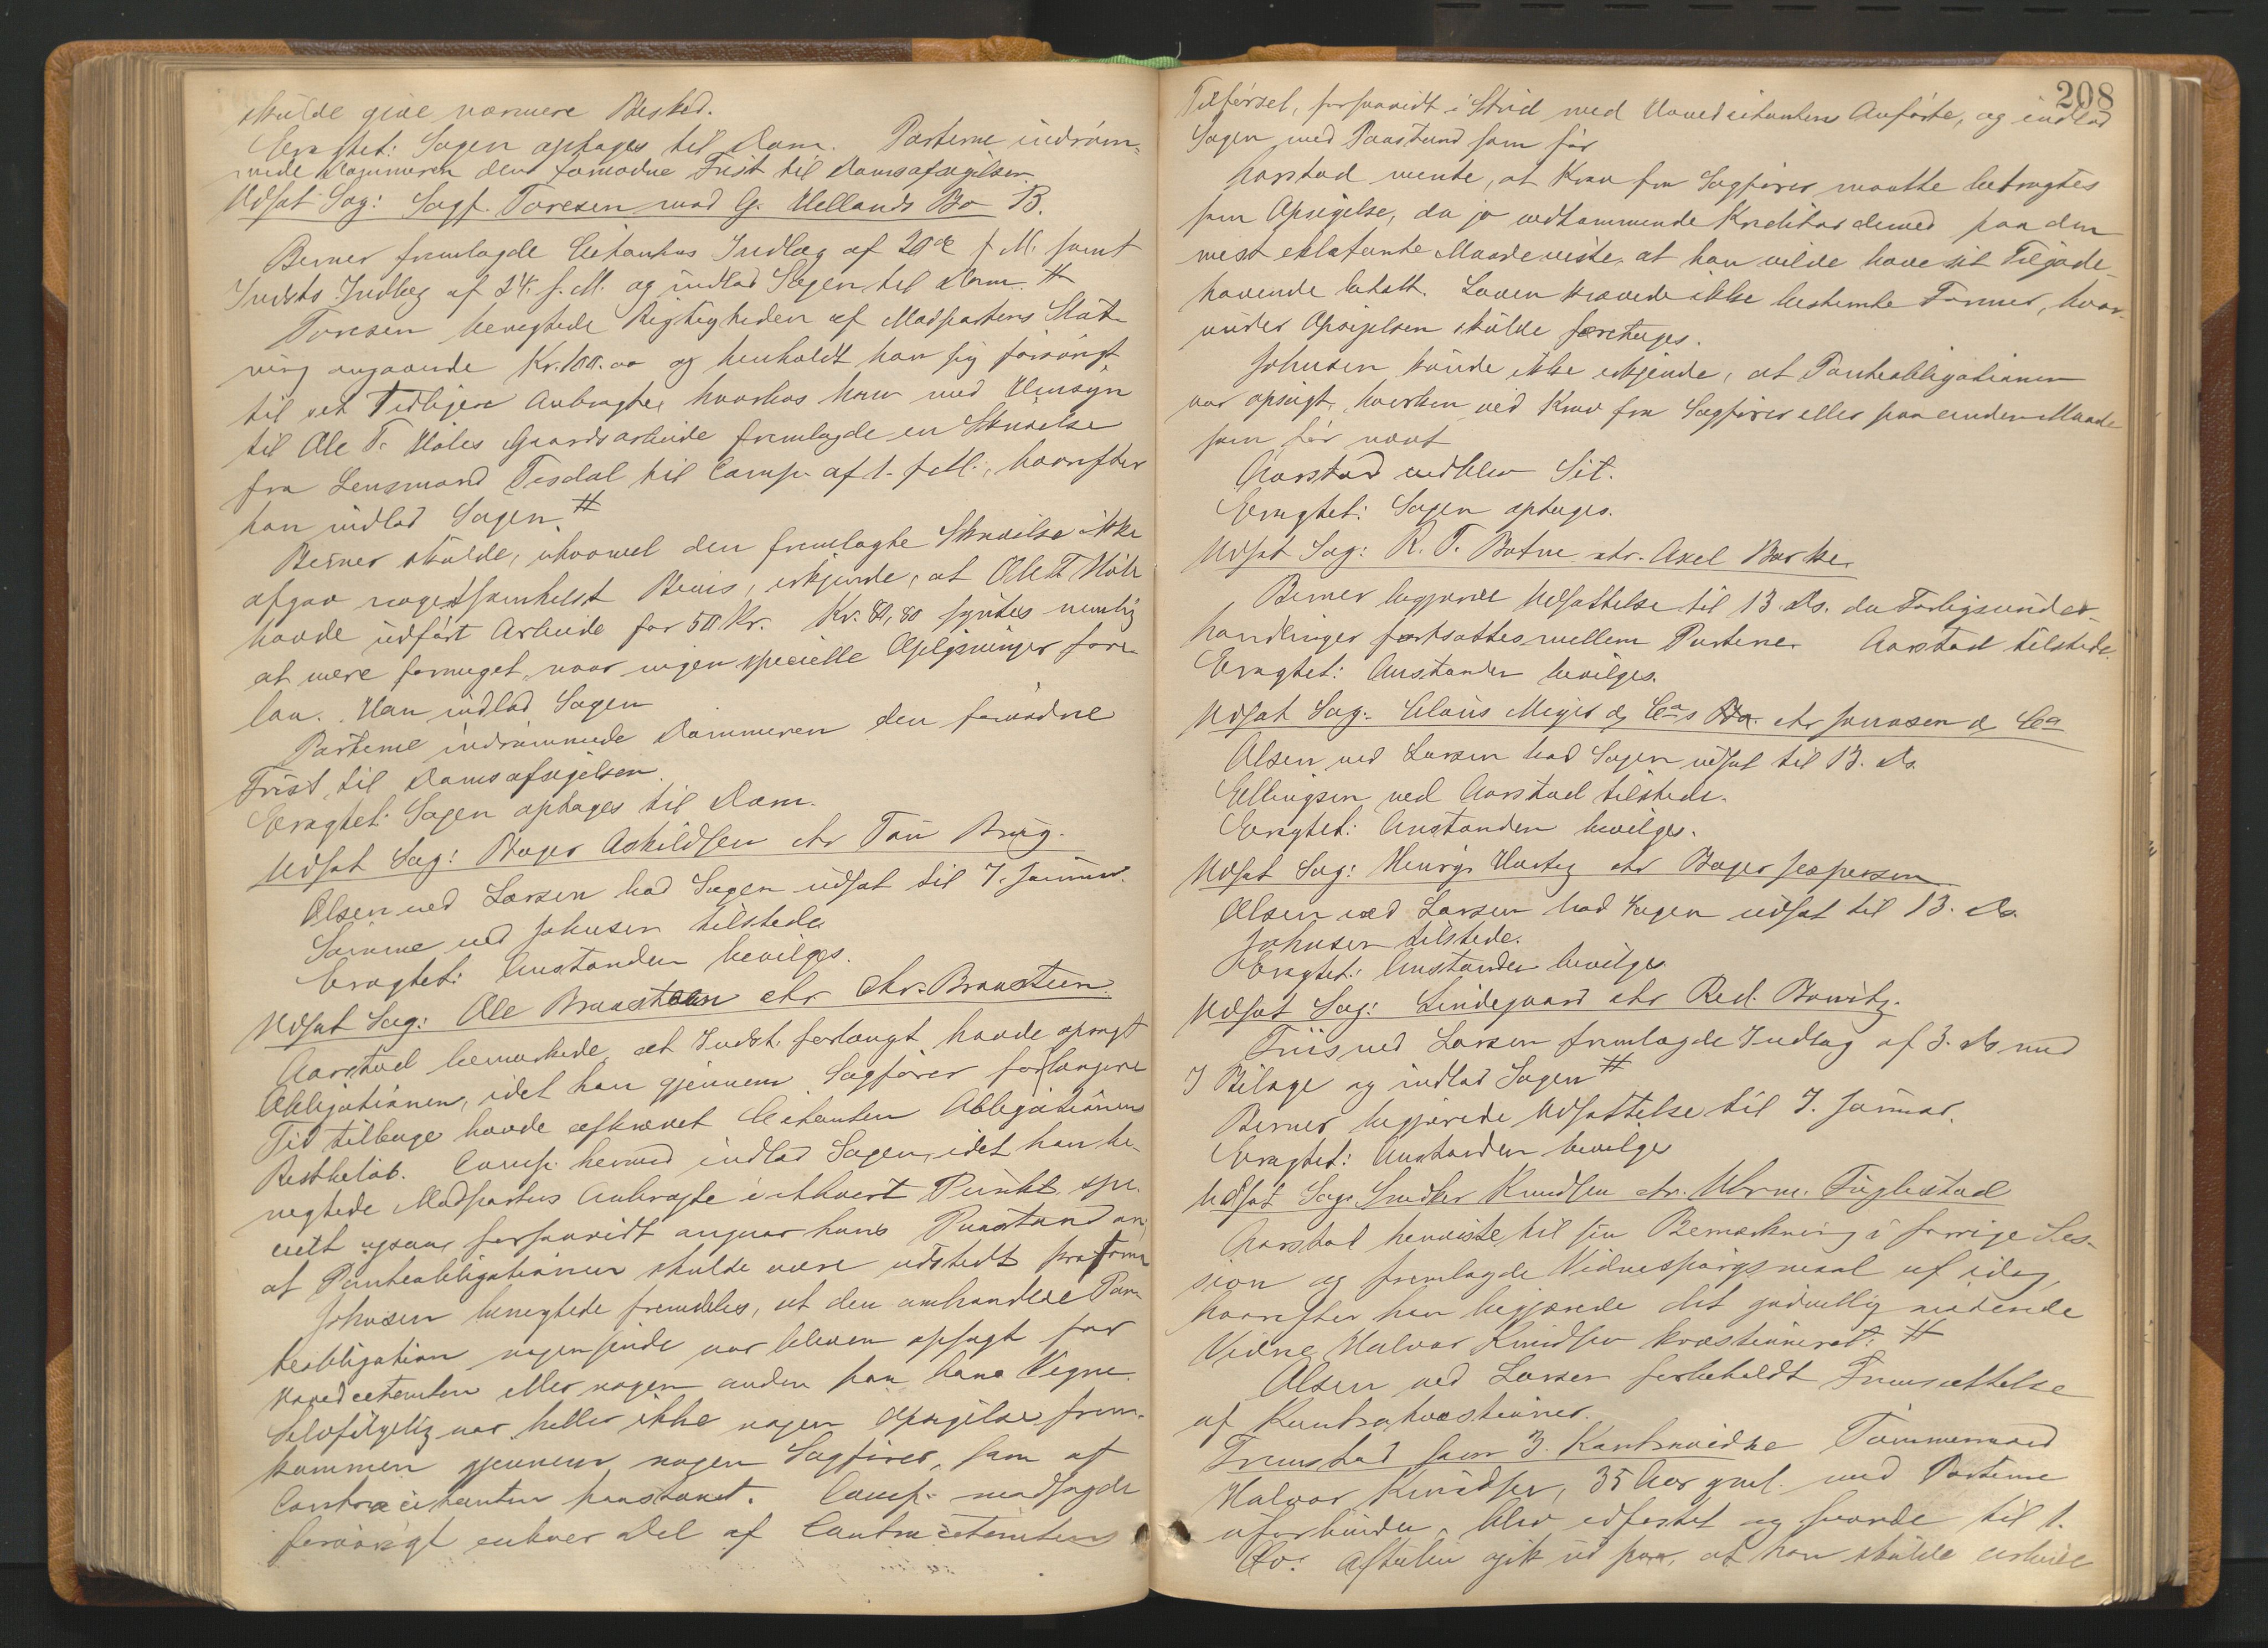 skulde give nærmere Besked.
Eragtet: Sagen optages til Dom. Parterne indrøm-
mede Dommeren den fornødne Frist til Domsafsigelsen.
Udsat Sag: Sagf. Toresen mod G. Hellands Bo B.
Berner fremlagde Citantens Indlæg af 20de f. M. samt
Indsts Indlæg af 24. f. M. og indlod Sagen til Dom. #
Toresen benegtede Rigtigheden af Modpartens Skriv-
ning angaaende Kr. 100.00 og henholdt han sig forøvrigt
til det Tidligere Anbragte, hvorhos han med Hensyn
til Ole T. Høles Gaardsarbeide fremlagde en Skrivelse
fra Lensmand Tesdal til Comp. af 1. f. M., hvorefter
han indlod Sagen. #
Berner skulde, uhvorvel den fremlagte Skrivelse ikke
afgav nogetsomhelst Bevis, erkjende, at Ole T. Høle
havde udført Arbeide for 50 Kr. Kr. 80,80 syntes nemlig
at være formeget, naar ingen specielle Oplysninger fore-
laa. Han indlod Sagen
Parterne indrømmede Dommeren den fornødne
Frist til Domsafsigelsen.
Eragtet: Sagen optages til Dom.
Udsat Sag: Bager Askildsen ctr Tou Brug.
Olsen ved Larsen bad Sagen udsat til 7. Januar.
Sømme ved Johnsen tilstede
Eragtet: Anstanden bevilges.
Udsat Sag: Ole Braastein ctr Chr. Braastein.
Aarstad bemærkede, at Indst. forlængst havde opsagt
Obligationen, idet han gjennem Sagfører for længere
Tid tilbage havde afkrævet Citanten Obligationens
Restbeløb. Comp. hermed indlod Sagen, idet han be-
negtede Modpartens Anbragte i ethvert Punkt, spe-
cielt ogsaa forsaavidt angaar hans Paastand om,
at Panteobligationen skulde være udstedt proforma
Johnsen benegtede fremdeles, at den omhandlede Pan-
teobligation nogensinde var bleven opsagt for
Hovedcitanten eller nogen anden paa hans Vegne.
Selvfølgelig var heller ikke nogen Opsigelse frem-
kommen gjennem nogen Sagfører, som af
Contracitanten paastaaet. Comp. modsagde
forøvrigt enhver Del af Contracitantens
208
Tilførsel, forsaavidt i Strid med Hovedcitantens Anførte, og indlod
Sagen med Paastand som før
Aarstad mente, at Krav fra Sagfører maatte betragtes
som Opsigelse, da jo vedkommende Kreditor derved paa den
mest eklatante Maade viste, at han vilde have sit Tilgode-
havende betalt. Loven krævede ikke bestemte Former, hvor-
under Opsigelsen skulde foretages.
Johnsen kunde ikke erkjende, at Panteobligationen
var opsagt, hverken ved Krav fra Sagfører eller paa anden Maade
som før nævnt
Aarstad vedblev Sit.
Eragtet: Sagen optages.
Udsat Sag: R. T. Botne ctr. Axel Barke
Berner begjærede Udsættelse til 13. ds. da Forligsunder-
handlinger fortsattes mellem Parterne. Aarstad tilstede.
Eragtet: Anstanden bevilges.
Udsat Sag: Claus Meyer & Cos Bo ctr Jonasen & Co
Olsen ved Larsen bad Sagen udsat til 13. ds.
Ellingsen ved Aarstad tilstede.
Eragtet: Anstanden bevilges.
Udsat Sag: Henrÿ Hartig ctr Bager Jespersen
Olsen ved Larsen bad Sagen udsat til 13. ds.
Johnsen tilstede.
Eragtet: Anstanden bevilges
Udsat Sag: Lindegaard ctr Red.
Friis ved Larsen fremlagde Indlæg af 3. ds med
7 Bilage og indlod Sagen #
Berner begjærede Udsættelse til 7. Januar.
Eragtet: Anstanden bevilges
Udsat Sag: Snedker Knudsen ctr. Fuglestad
Aarstad henviste til sin Bemærkning i forrige Ses-
sion og fremlagde Vidnespørgsmaal af idag,
hvorefter han begjærede det godvillig mødende
Vidne Halvor Knudsen kvæstioneret. #
Olsen ved Larsen forbeholdt Fremsættelse
af Kontrakvæstioner.
Fremstod som 3. Kontravidne Tømmermand
Halvor Knudsen, 35 Aar gml. med Parterne
uforbunden, blev edfæstet og svarede til 1.
Qv: Aftalen gik ud paa, at han skulde arbeide